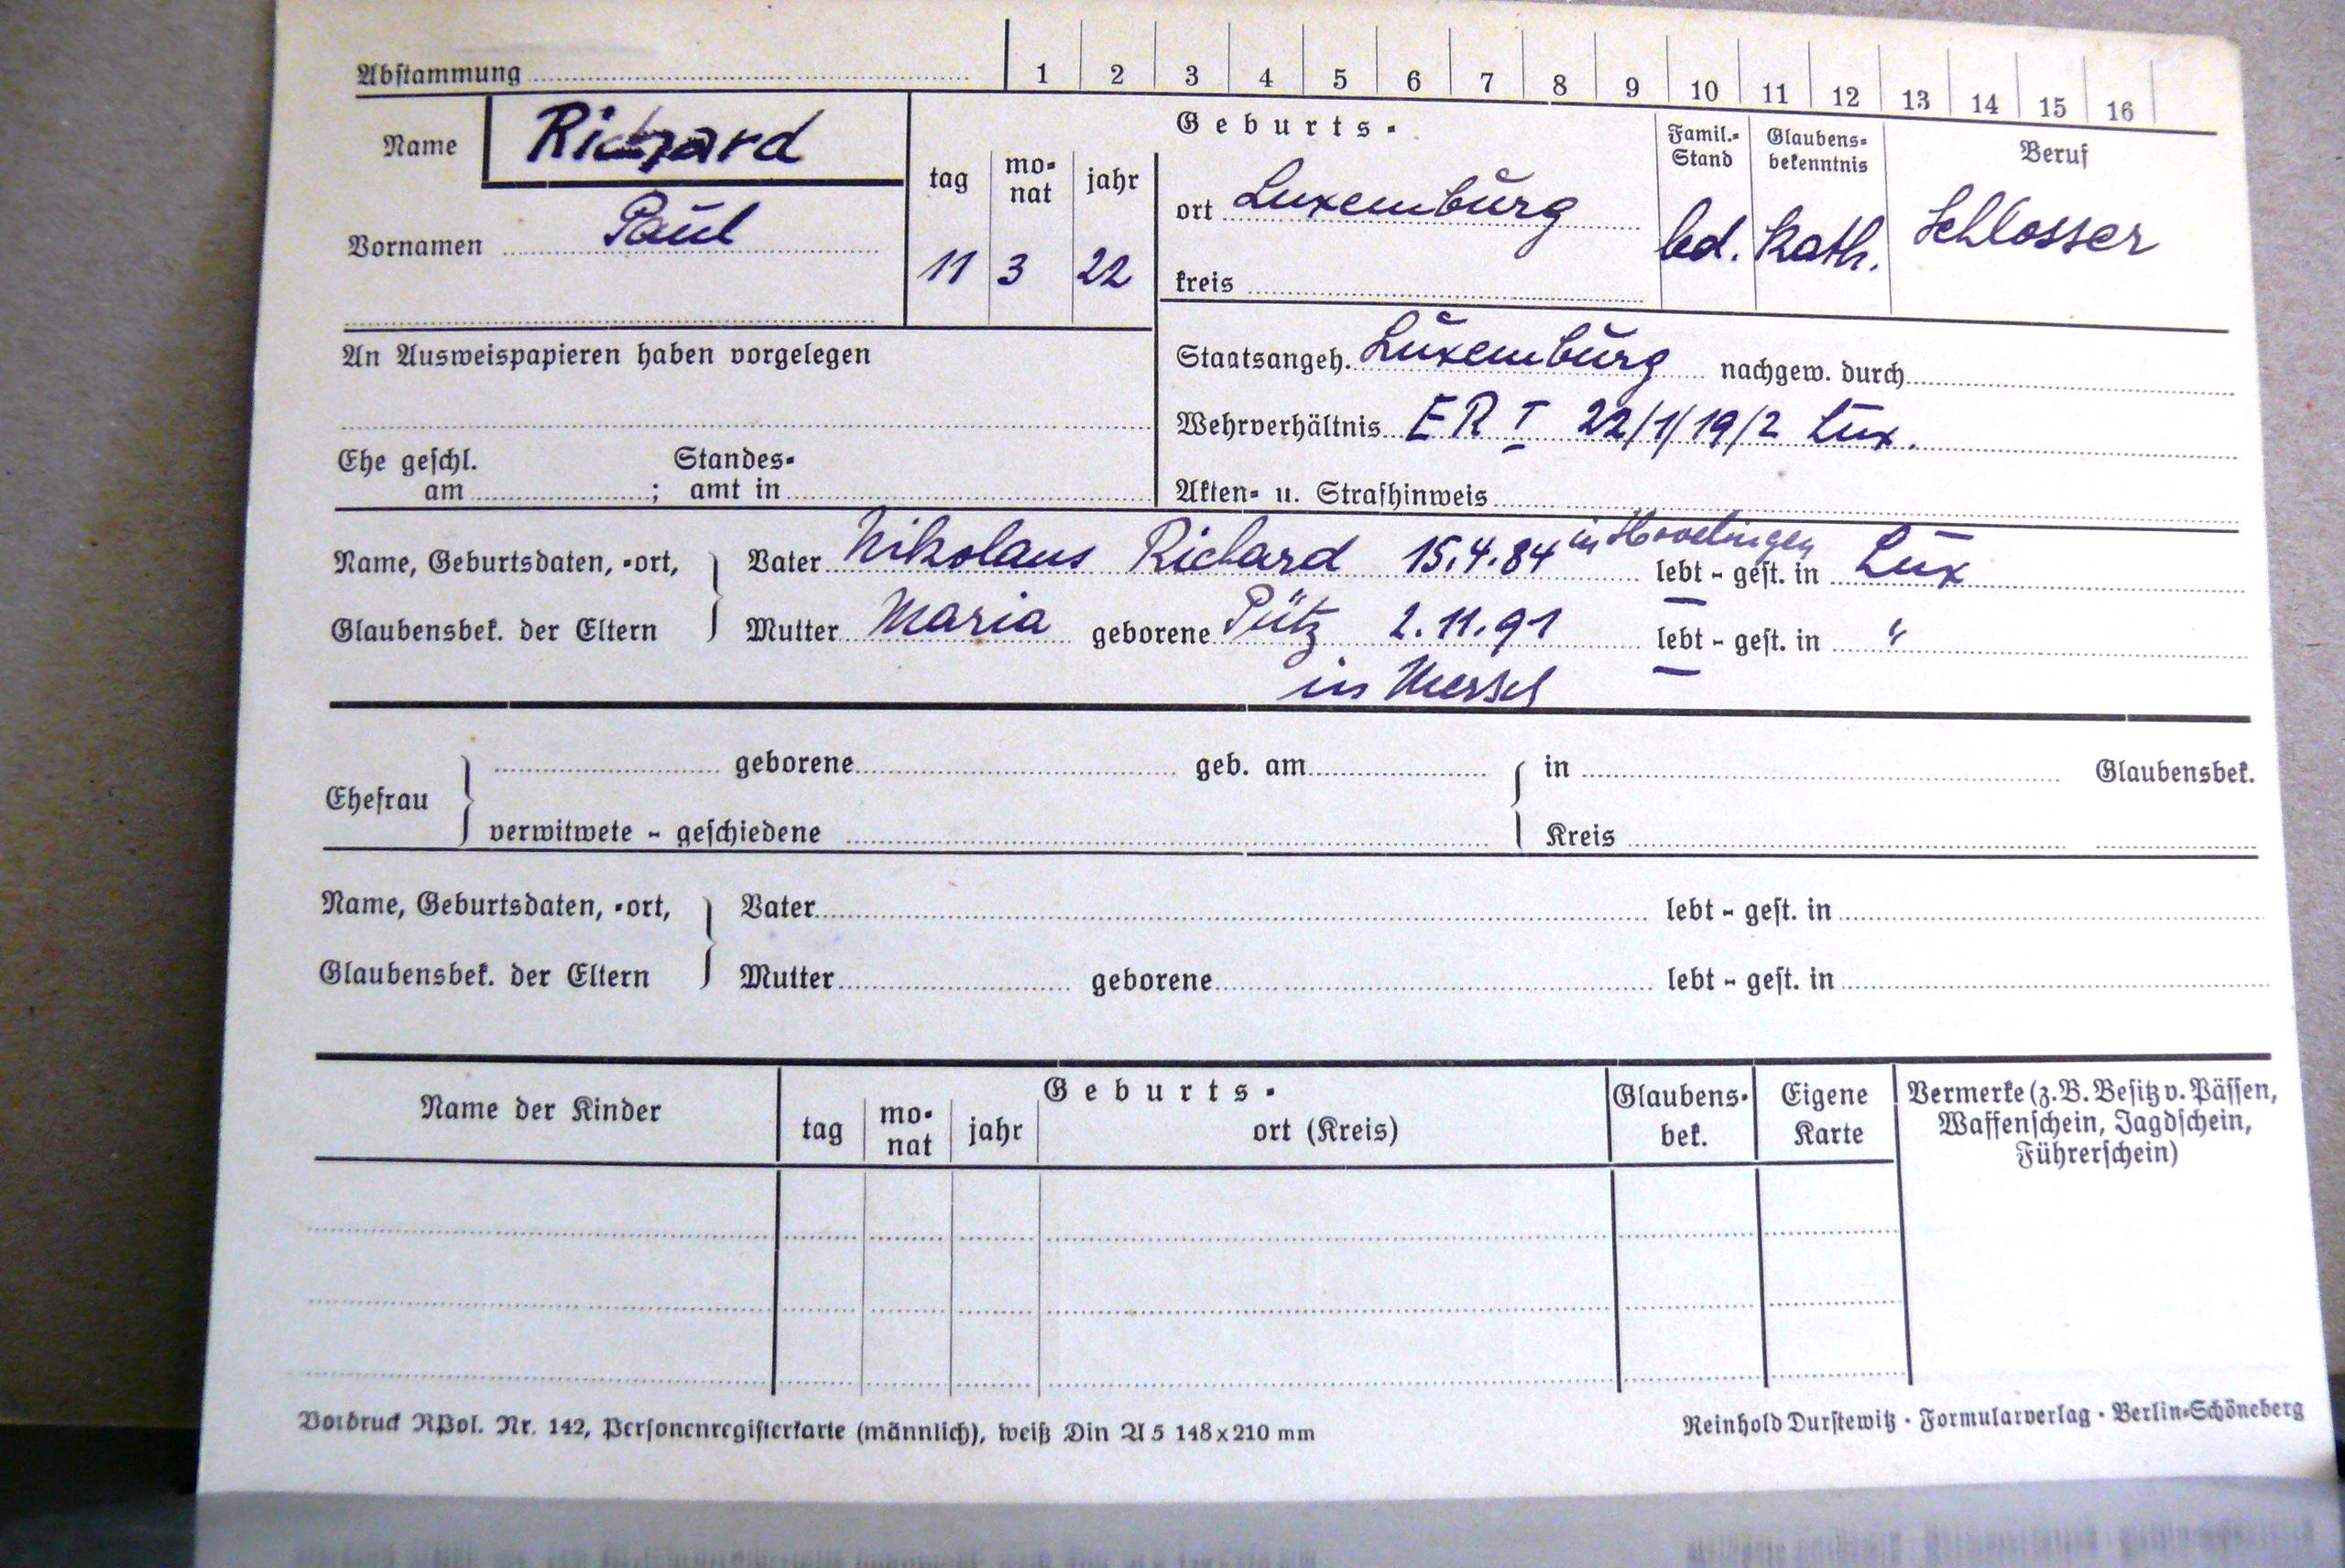 Abstammung 1 2 3 4 5 6 7 8 9 10 11 12 13 14 15 16
Name Richard
Vornamen Paul
Geburts-
tag monat jahr
11 3 22
ort Luxemburg
kreis
Famil.-Stand
led.
Glaubensbekenntnis
kath.
Beruf
Schlosser
An Ausweispapieren haben vorgelegen
Staatsangeh. Luxemburg nachgew. durch
Wehrverhältnis ER I 22/1/19/2 Lux.
Ehe geschl. am ; Standesamt in
Akten- u. Strafhinweis
Name, Geburtsdaten, -ort, Vater Nikolaus Richard 15.4.84 in lebt - gest. in Lux
Glaubensbek. der Eltern Mutter Maria geborene Pütz 2.11.91 lebt - gest. in "
in
Ehefrau geborene geb. am in Glaubensbek.
verwitwete - geschiedene Kreis
Name, Geburtsdaten, -ort, Vater lebt - gest. in
Glaubensbek. der Eltern Mutter geborene lebt - gest. in
Name der Kinder
Geburts-
tag monat jahr ort (Kreis)
Glaubensbek.
Eigene Karte
Vermerke (z. B. Besitz v. Pässen,
Waffenschein, Jagdschein,
Führerschein)
Vordruck RPol. Nr. 142, Personenregisterkarte (männlich), weiß Din A 5 148x210 mm
Reinhold Durstewitz · Formularverlag · Berlin-Schöneberg